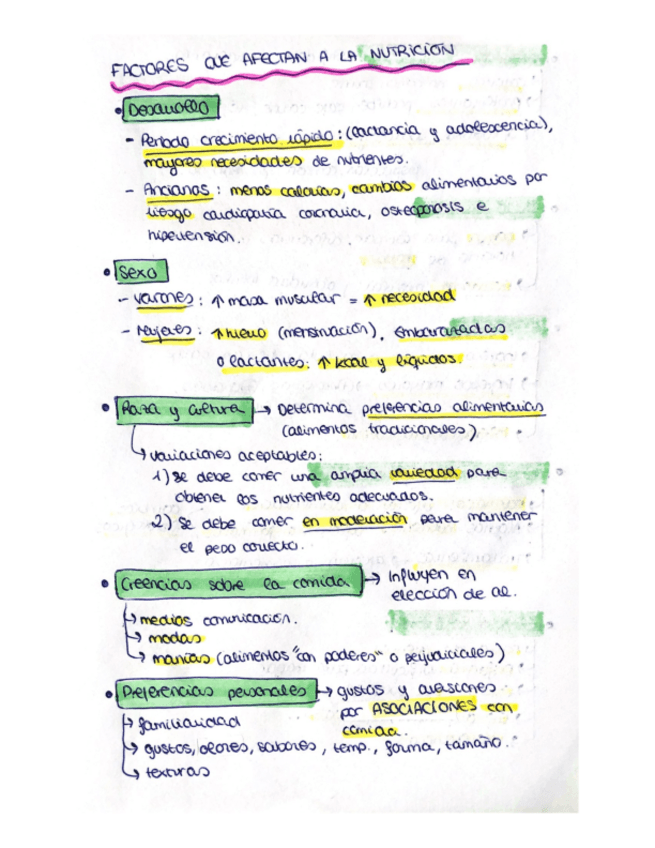 FACTORES QUE AFECTAN A LA NUTRICIÓN
• Desarrollo
- Período crecimiento rápido: (lactancia y adolescencia),
mayores necesidades de nutrientes.
- Ancianos: menos calorías, cambios alimentarios por
riesgo cardiopatía coronaria, osteoporosis e
hipertensión.
• Sexo
- Varones: ↑ masa muscular = ↑ necesidad
- Mujeres: ↑ hierro (menstruación), embarazadas
o lactantes: ↑ kcal y líquidos.
• Raza y cultura → Determina preferencias alimentarias
(alimentos tradicionales)
↳ variaciones aceptables:
1) se debe comer una amplia variedad para
obtener los nutrientes adecuados.
2) Se debe comer en moderación para mantener
el peso correcto.
• Creencias sobre la comida → Influyen en
elección de al.
↳ medios comunicación.
↳ modas
↳ manías (alimentos "con poderes" o perjudiciales)
• Preferencias personales → gustos y aversiones
por ASOCIACIONES con
comida.
↳ familiaridad
↳ gustos, olores, sabores, temp., forma, tamaño.
↳ texturas